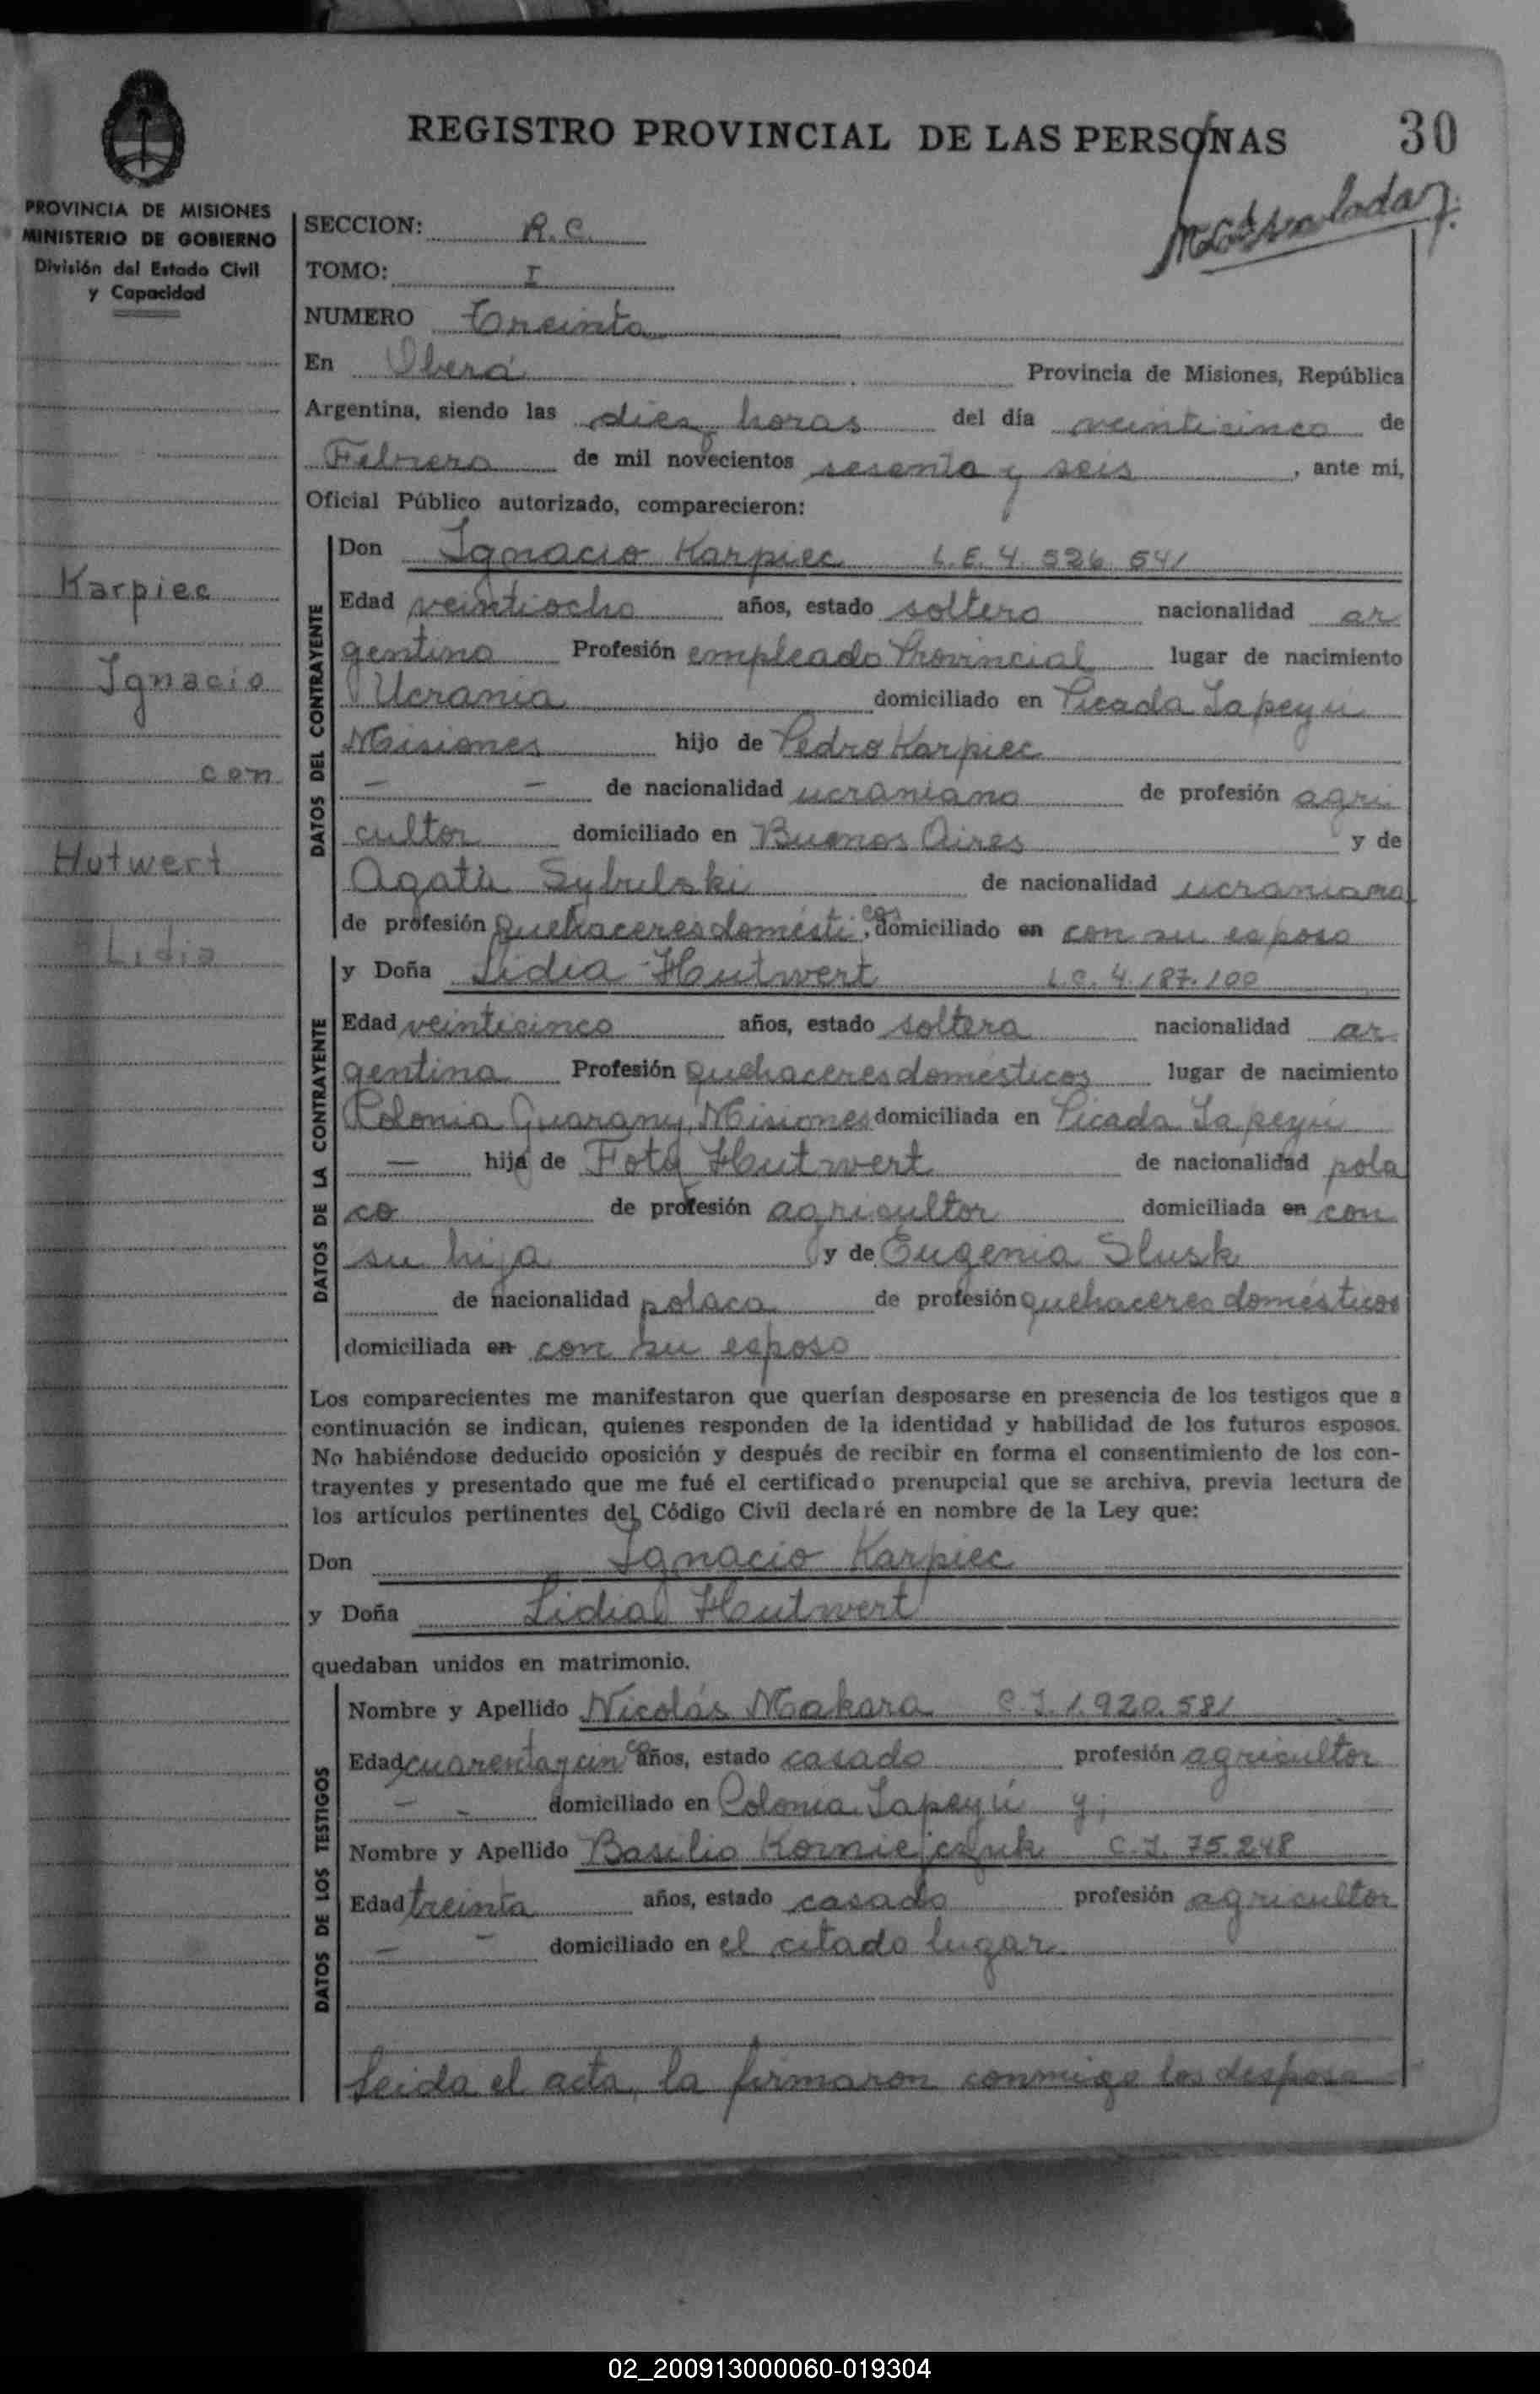 REGISTRO PROVINCIAL DE LAS PERSONAS
30
PROVINCIA DE MISIONES
MINISTERIO DE GOBIERNO
División del Estado Civil
y Capacidad
SECCION: R.C.
TOMO: I
NUMERO Treinta
En Oberá Provincia de Misiones, República
Argentina, siendo las diez horas del día veinticinco de
Febrero de mil novecientos sesenta y seis, ante mi,
Oficial Público autorizado, comparecieron:
Karpiec
Ignacio
con
Hutwert
Lidia
DATOS DEL CONTRAYENTE
Don Ignacio Karpiec L.E. 4.526.541
Edad veintiocho años, estado soltero nacionalidad ar
gentino Profesión empleado Provincial lugar de nacimiento
Ucrania domiciliado en Picada Yapeyú
Misiones hijo de Pedro Karpiec
— — de nacionalidad ucraniano de profesión agri
cultor domiciliado en Buenos Aires y de
Agata Sybulski de nacionalidad ucraniana
de profesión Quehaceres domésticos, domiciliado en con su esposo
DATOS DE LA CONTRAYENTE
y Doña Lidia Hutwert L.C. 4.187.100
Edad veinticinco años, estado soltera nacionalidad ar
gentina Profesión quehaceres domésticos lugar de nacimiento
Colonia Guarany, Misiones domiciliada en Picada Yapeyú
— hija de Fota Hutwert de nacionalidad pola
co de profesión agricultor domiciliada en con
su hija y de Eugenia Slusk
de nacionalidad polaca de profesión quehaceres domésticos
domiciliada en con su esposo
Los comparecientes me manifestaron que querían desposarse en presencia de los testigos que a
continuación se indican, quienes responden de la identidad y habilidad de los futuros esposos.
No habiéndose deducido oposición y después de recibir en forma el consentimiento de los con-
trayentes y presentado que me fué el certificado prenupcial que se archiva, previa lectura de
los artículos pertinentes del Código Civil declaré en nombre de la Ley que:
Don Ignacio Karpiec
y Doña Lidia Hutwert
quedaban unidos en matrimonio.
DATOS DE LOS TESTIGOS
Nombre y Apellido Nicolás Makara C.I. 1.920.581
Edad cuarentaycinco años, estado casado profesión agricultor
— - domiciliado en Colonia Yapeyú y;
Nombre y Apellido Basilio Korniejczuk C.I. 75.248
Edad treinta años, estado casado profesión agricultor
— - domiciliado en el citado lugar
Leida el acta, la firmaron conmigo los desposa
02_200913000060-019304